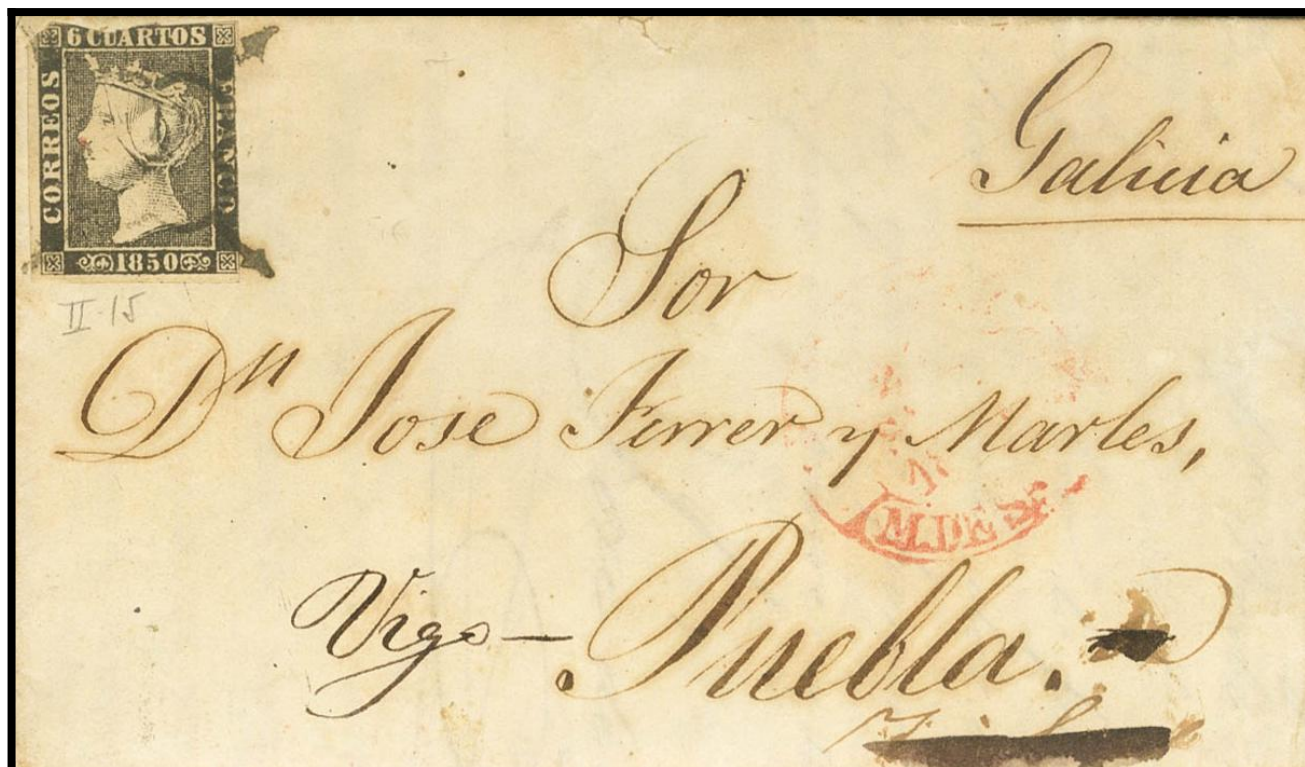 6 CUARTOS
CORREOS
FRANCO
1850
II-15
Galicia
Sor
Dn Jose Ferrer y Marles,
M.DE
Vigo - Puebla.